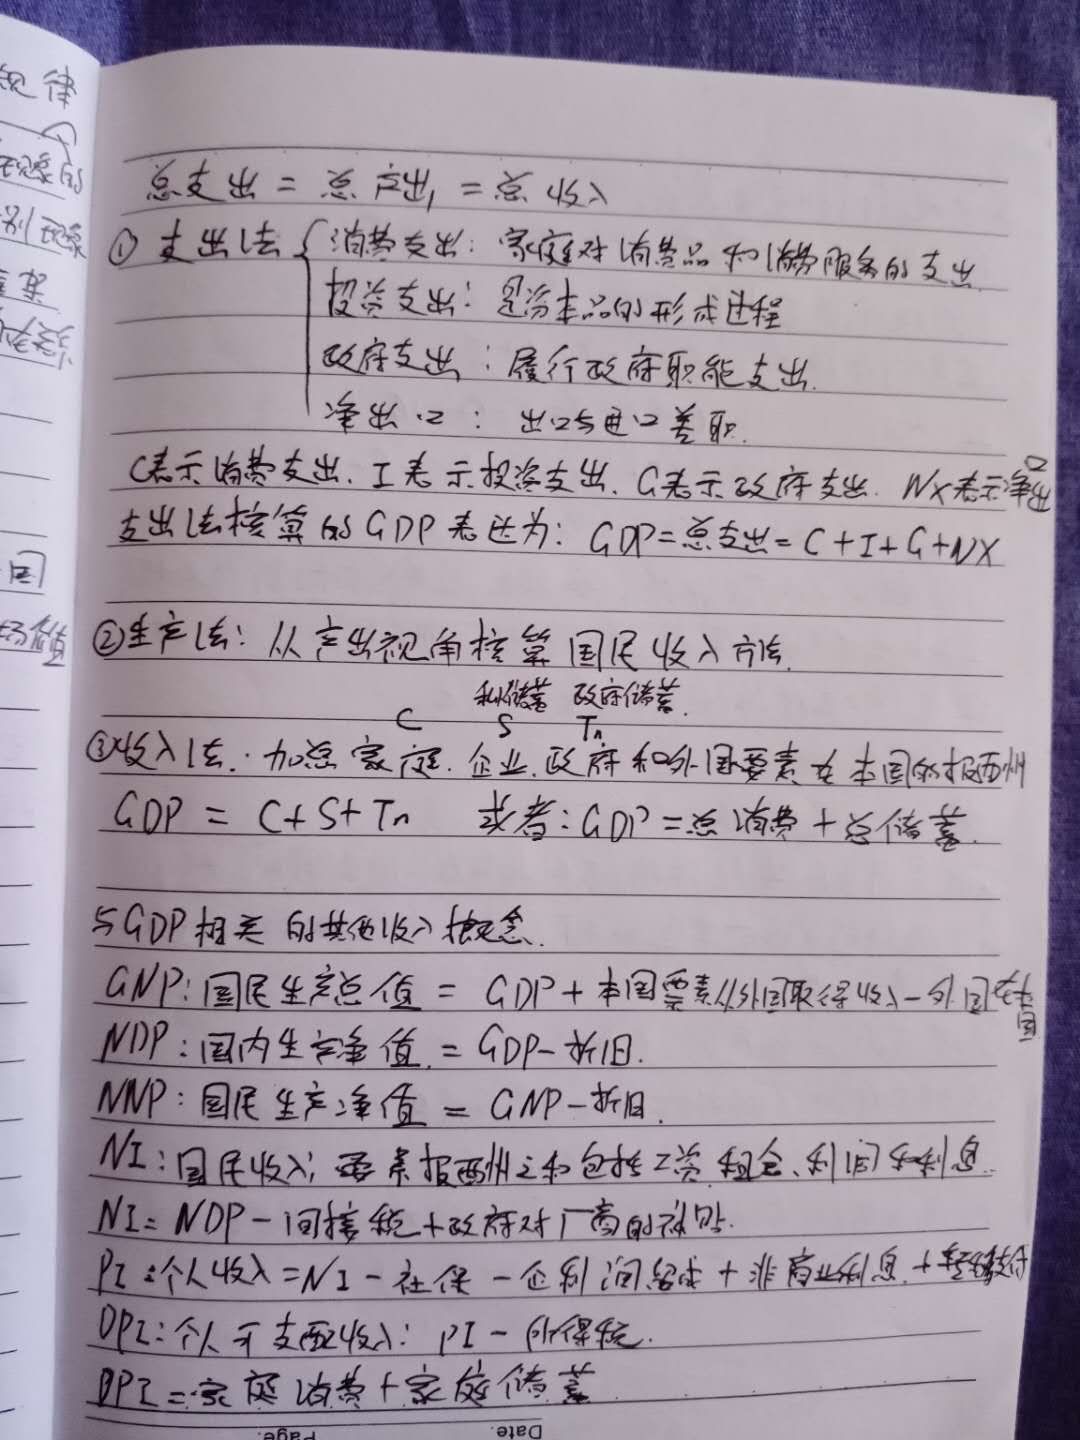 规律
现象的
别现象
国
场价值
总支出 = 总产出 = 总收入
① 支出法 { 消费支出: 家庭对消费品和消费服务的支出
投资支出: 是资本品的形成过程
政府支出: 履行政府职能支出.
净出口: 出口与进口差取.
C表示消费支出. I表示投资支出. G表示政府支出. NX表示净出口
支出法核算的GDP表达为: GDP=总支出=C+I+G+NX
②生产法: 从产出视角核算国民收入方法.
私储蓄 政府储蓄.
C S Tn
③收入法. 加总家庭.企业.政府和外国要素在本国的报酬
GDP = C+S+Tn 或者:GDP=总消费+总储蓄.
与GDP相关的其他收入概念.
GNP:国民生产总值 = GDP+本国要素从外国取得收入-外国在本国
NDP:国内生产净值.=GDP-折旧.
NNP:国民生产净值 = GNP-折旧.
NI:国民收入; 要素报酬之和包括工资.租金、利润和利息.
NI=NDP-间接税+政府对厂商的补贴.
PI:个人收入=NI-社保-企利润留成+非商业利息.+转移支付
DPI:个人可支配收入: PI-所得税.
DPI=家庭消费+家庭储蓄
Date.
Page.